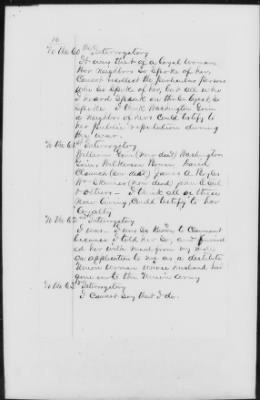 To No 60th Interrogatory
It was that of a loyal woman
Her neighbors so spoke of her,
Cannot recollect the particular persons
who so spoke of her, but all who
I heard speak on the subject, so
spoke. I think Washington
a neighbor of hers could testify to
her public reputation during
the war.
To No 61st Interrogatory
William (now dead) Washington
(now dead) James A.
(now dead) John
& others - I think all of those
now living, could testify to her
loyalty
To No 62nd Interrogatory
I was. I was so known to Claimant
because I told her so, and furnished
her with meal from my mill
on application to me as a destitute
Union woman whose husband had
gone into the Union Army
To No 63rd Interrogatory
I cannot say that I do.